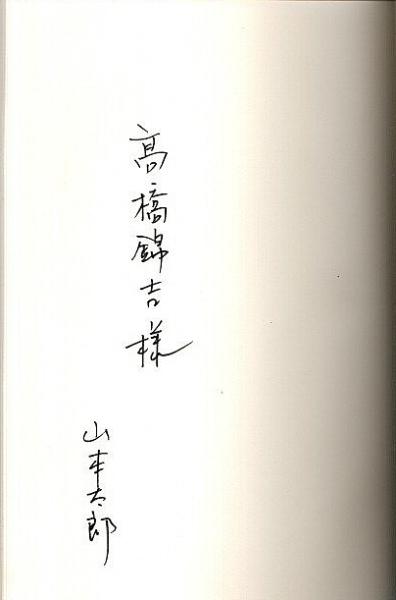 髙橋錦吉様
山本太郎